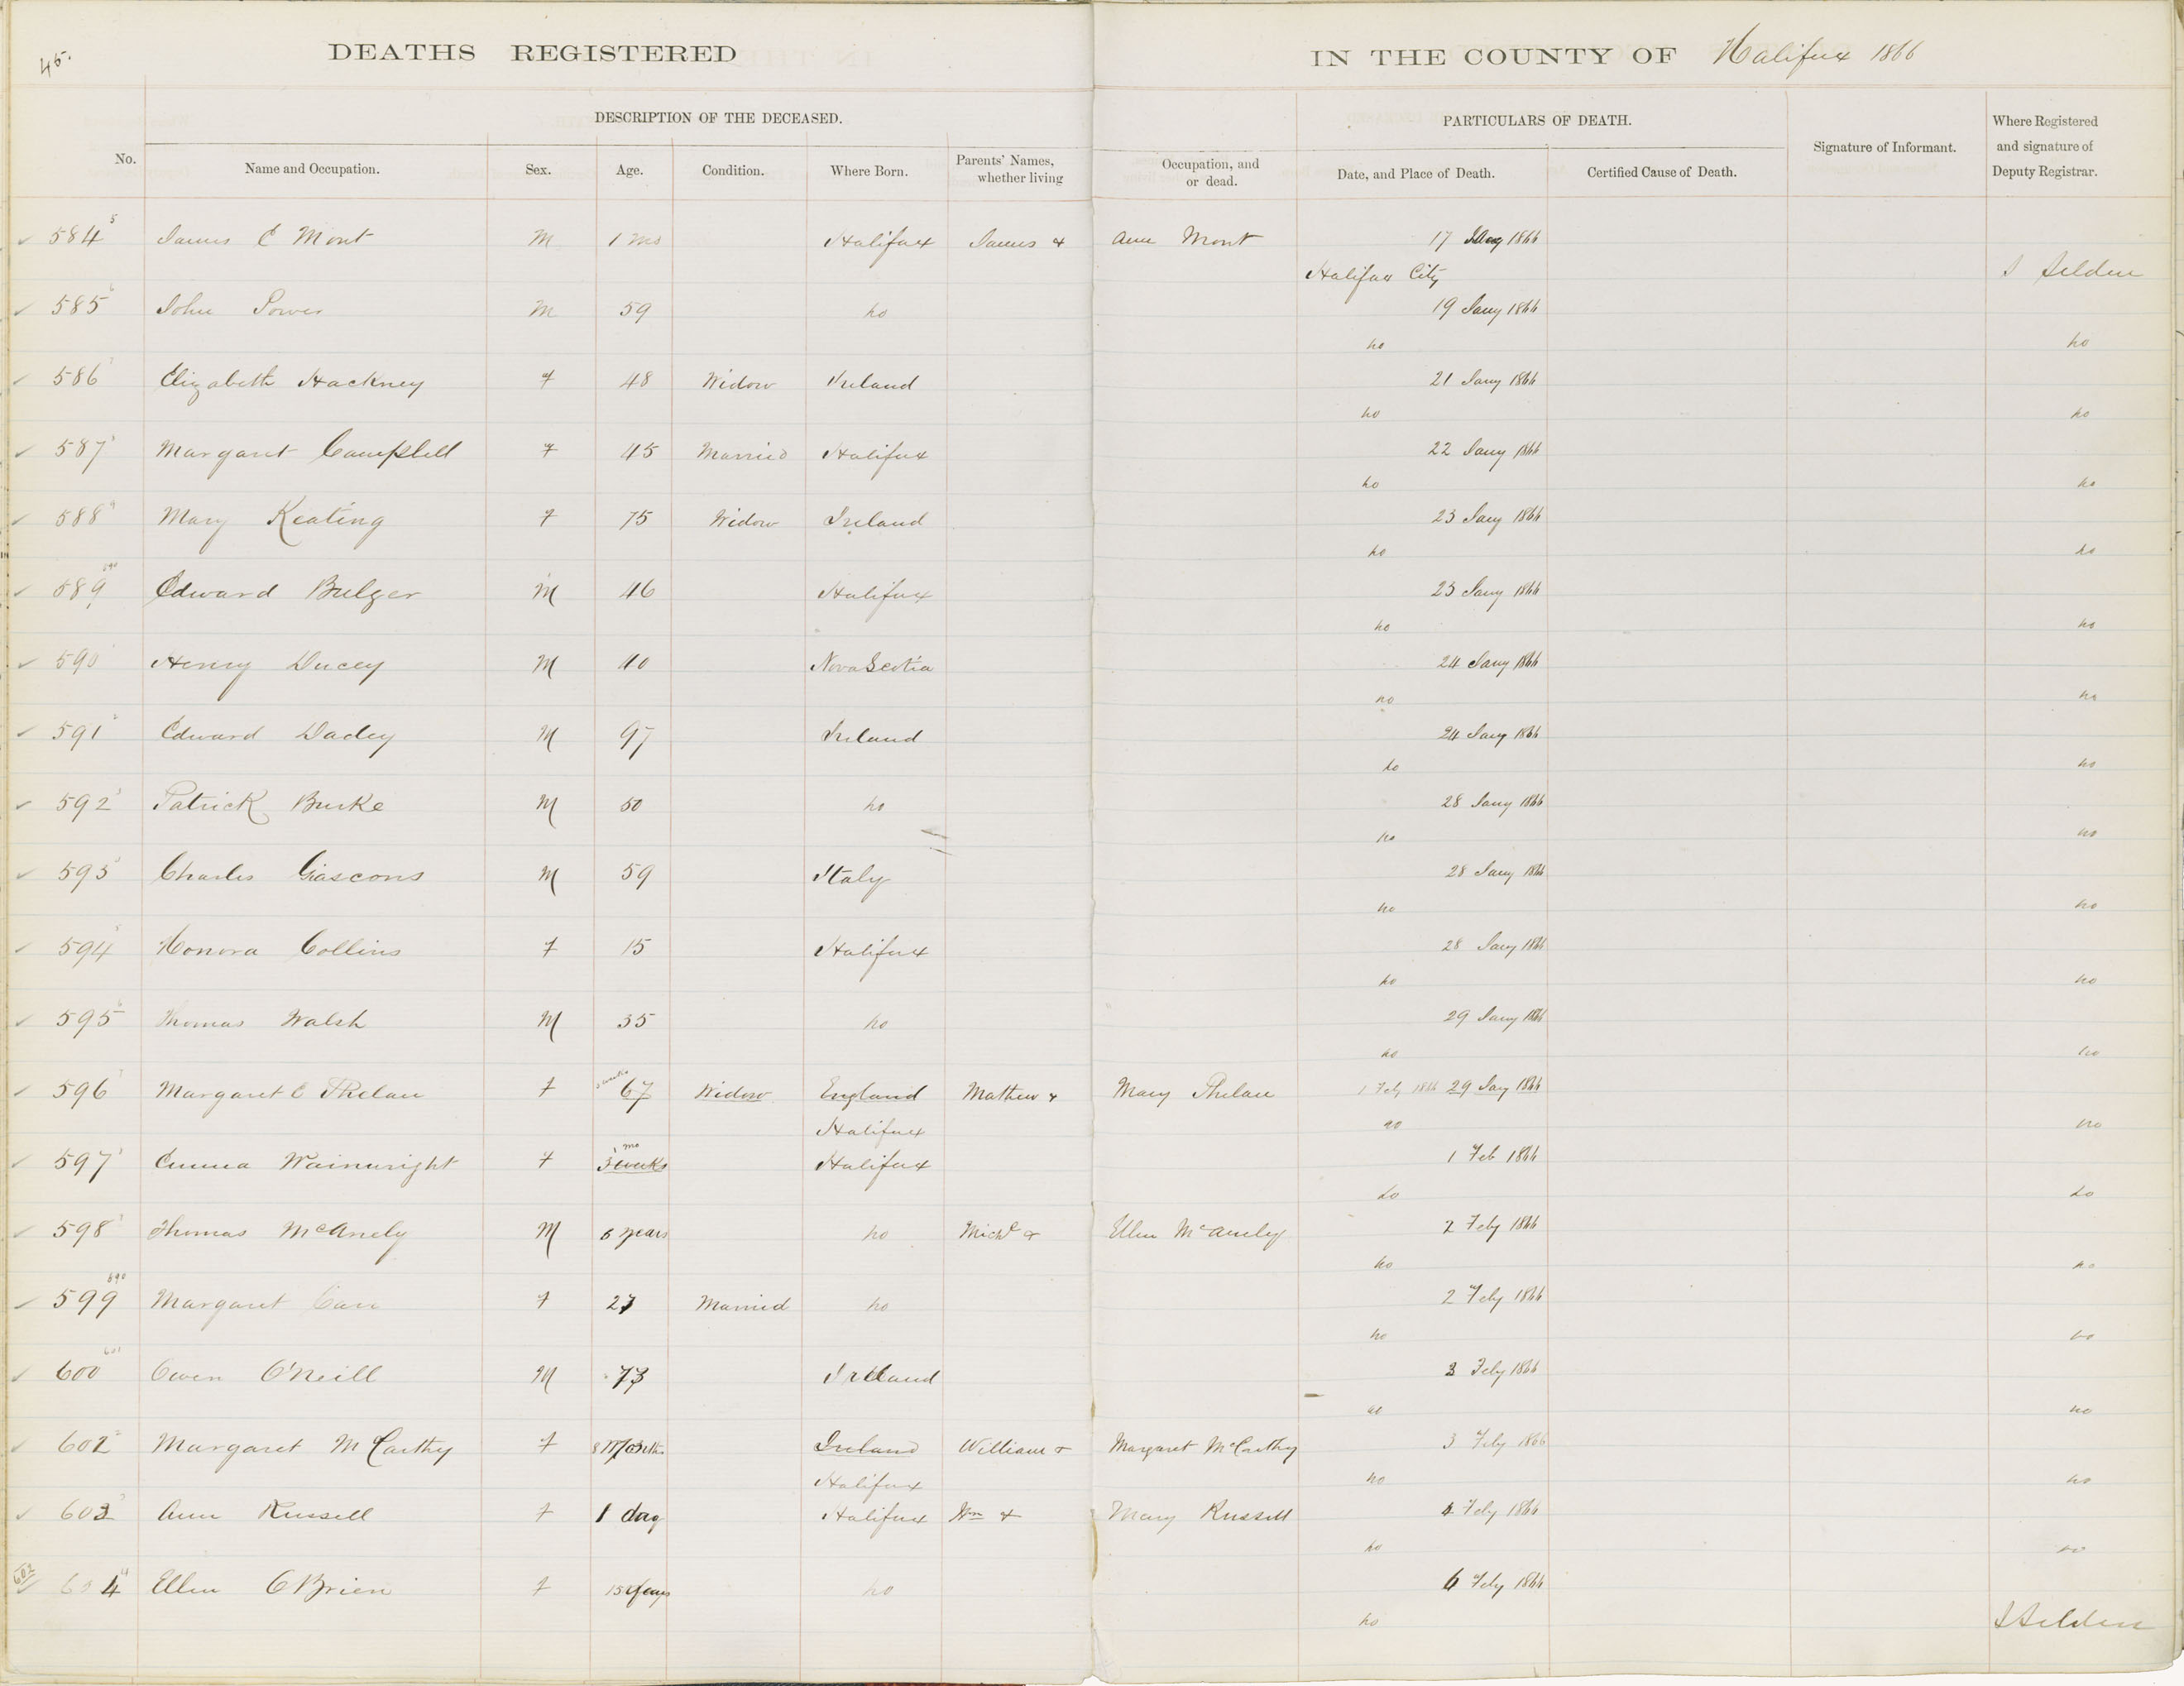 45.
DEATHS REGISTERED IN THE COUNTY OF Halifax 1866
DESCRIPTION OF THE DECEASED. PARTICULARS OF DEATH.
No. Name and Occupation. Sex. Age. Condition. Where Born. Parents' Names, whether living Occupation, and or dead. Date, and Place of Death. Certified Cause of Death. Signature of Informant. Where Registered and signature of Deputy Registrar.
584 5 James C Mont M 1 mo Halifax James & Ann Mont 17 Jany 1866
Halifax City J Selden
585 6 John Power M 59 Do 19 Jany 1866
Do Do
586 7 Elizabeth Hackney F 48 Widow Ireland 21 Jany 1866
Do Do
587 8 Margaret Campbell F 45 Married Halifax 22 Jany 1866
Do Do
588 9 Mary Keating F 75 Widow Ireland 23 Jany 1866
Do Do
589 590 Edward Bulger M 46 Halifax 23 Jany 1866
Do Do
590 Henry Ducey M 40 Nova Scotia 24 Jany 1866
Do Do
591 2 Edward Dadey M 97 Ireland 24 Jany 1866
Do Do
592 3 Patrick Burke M 50 Do 28 Jany 1866
Do Do
593 Charles Giascons M 59 Italy 28 Jany 1866
Do Do
594 5 Honora Collins F 15 Halifax 28 Jany 1866
Do Do
595 6 Thomas Walsh M 35 Do 29 Jany 1866
Do Do
596 7 Margaret C Phelan F 67 Widow England Mathew & Mary Phelan 1 Feby 1866 29 Jany 1866
Halifax Do Do
597 Emma Wainwright F 3 weeks mo Halifax 1 Feb 1866
Do Do
598 Thomas McAnely M 6 years Do Michl & Ellen McAnely 2 Feby 1866
Do Do
599 Margaret Carr F 27 Married Do 2 Feby 1866
Do Do
600 601 Owen O'Neill M 73 Ireland 3 Feby 1866
Do Do
602 Margaret McCarthy F 8 Months Ireland William & Margaret McCarthy 3 Feby 1866
Halifax Do Do
603 Ann Russell F 1 day Halifax Wm & Mary Russell 4 Feby 1866
Do Do
602 604 Ellen O'Brien F 15 Years Do 6 Feby 1866
Do J Selden